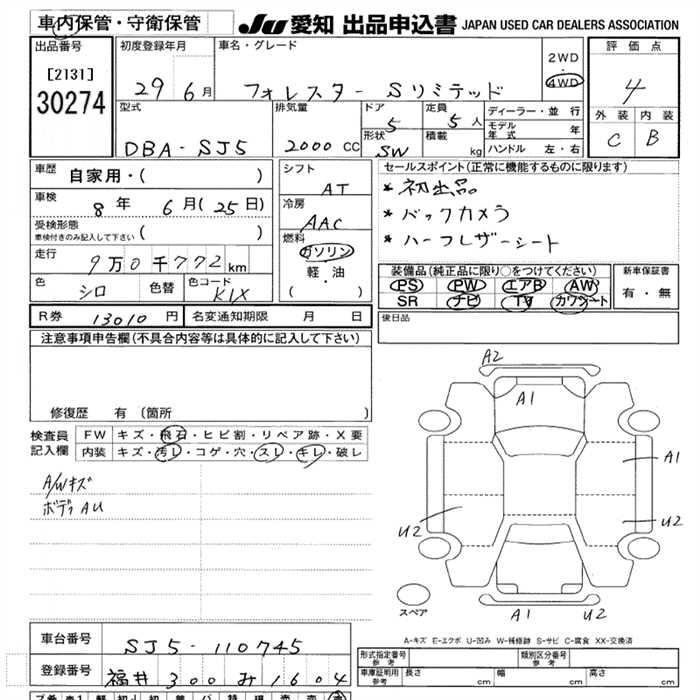 車内保管・守衛保管
JU 愛知 出品申込書 JAPAN USED CAR DEALERS ASSOCIATION
出品番号
[2131]
30274
初度登録年月
29 6月
車名・グレード
フォレスター Sリミテッド
2WD
・
4WD
評価点
4
外装 内装
C B
型式
DBA-SJ5
排気量
2000 CC
ドア
5
形状
SW
定員
5人
積載
kg
ディーラー・並行
モデル年式 年
ハンドル 左・右
車歴
自家用・( )
車検
8年 6月(25日)
受検形態
車検付きのみ記入して下さい ( )
走行
9万0千772km
色
シロ
色替
色コード
K1X
シフト
AT
冷房
AAC
燃料
ガソリン
軽・油
( ・ )
セールスポイント(正常に機能するものに限ります)
* 初出品
* バックカメラ
* ハーフレザーシート
装備品(純正品に限り○をつけてください)
PS PW エアB AW
SR ナビ TV カワシート
新車保証書
有・無
R券 13010円 名変通知期限 月 日
後日品
注意事項申告欄(不具合内容等は具体的に記入して下さい)
修復歴 有 (箇所 )
検査員記入欄
FW キズ・飛石・ヒビ割・リペア跡・X要
内装 キズ・汚レ・コゲ・穴・スレ・キレ・破レ
A/Wキズ
ボディAU
A2
A1
A1
U2
U2
スペア
A1 U2
A-キズ E-エクボ U-凹み W-補修跡 S-サビ C-腐食 XX-交換済
車台番号
SJ5-110745
登録番号
福井 300 み 1604
形式指定番号
参考
類別区分番号
参考
車庫証明用
参考
長さ cm 幅 cm 高さ cm